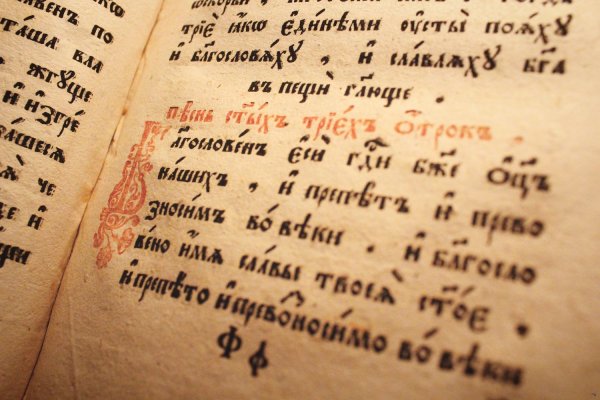 вен по
таша вла
жгуще
и изгре
вашесѧ
ѧ че
де и
трїе́ ꙗ҆́кѡ є҆ди́нѣми ᲂу҆сты̀ поѧ́хꙋ
и҆ бл҃гословѧ́хꙋ , и҆ сла́влѧхꙋ бг҃а
въ пещѝ гл҃юще .
пѣ́снь ст҃ы́хъ трїе́хъ ѻ҆́трокъ .
Бл҃гослове́нъ є҆сѝ гд҃и бж҃е ѻ҆ц҃ъ
на́шихъ , и҆ препѣ́тъ и҆ прево
зноси́мъ во́ вѣки . и҆ бл҃госло
ве́но и҆́мѧ сла́вы твоеѧ̀ ст҃о́е .
и҆ препѣ́то и҆ превозноси́мо во́ вѣки
Ф ф